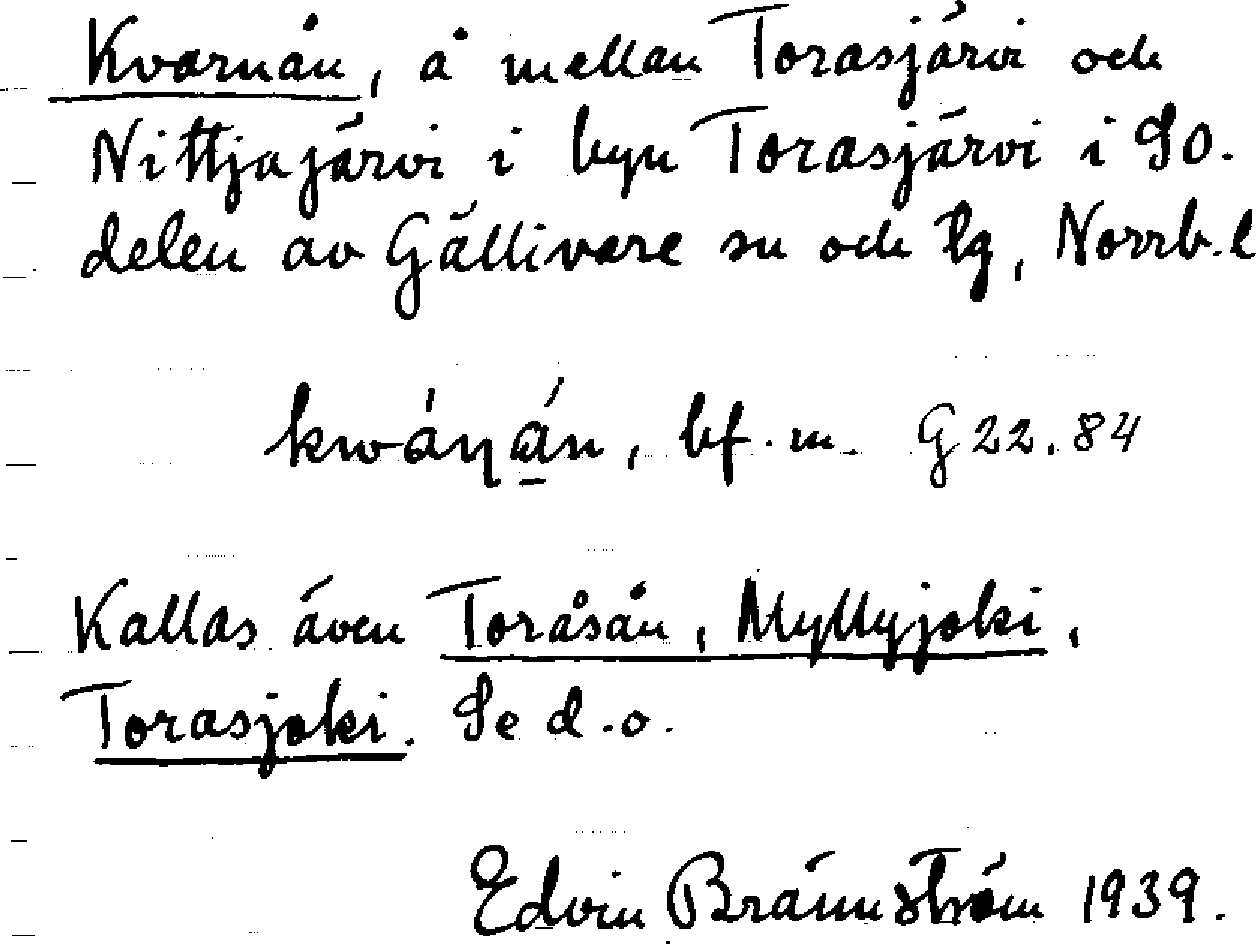 Kvarnån, å mellan Torasjärvi och
Nittjajärvi i byn Torasjärvi i SO.
delen av Gällivare sn och tg, Norrb. l
kwáṇa̱ń, bf. m. G 22. 84
Kallas även Toråsån, Myllyjoki,
Torasjoki. Se d. o.
Edvin Brännström 1939.